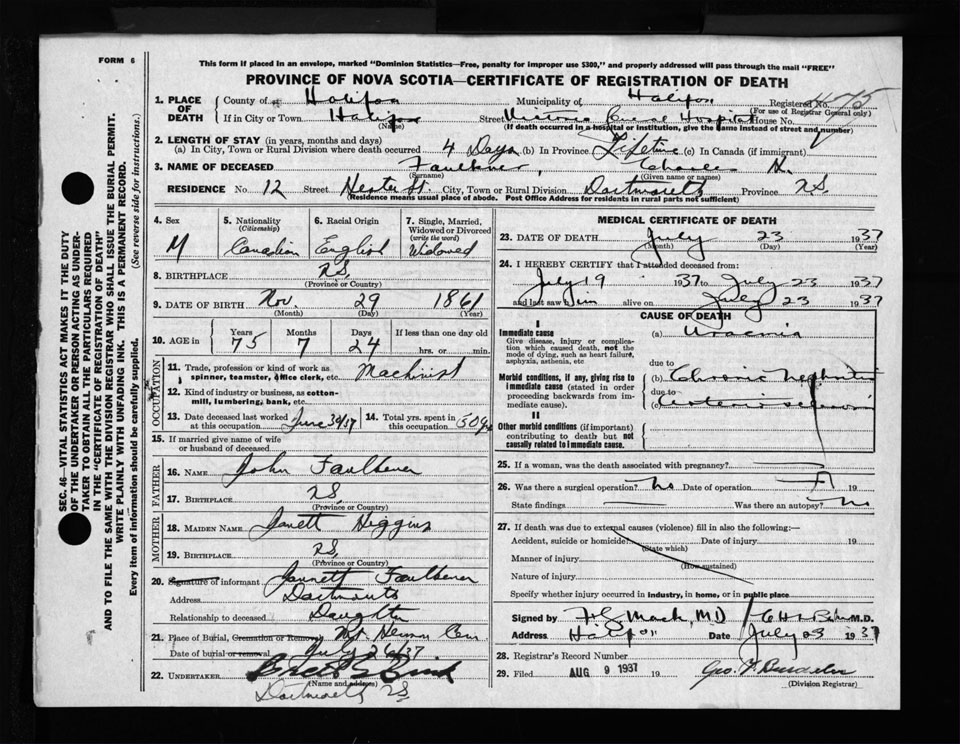 FORM 6
This form if placed in an envelope, marked "Dominion Statistics—Free, penalty for improper use $300," and properly addressed will pass through the mail "FREE"
PROVINCE OF NOVA SCOTIA—CERTIFICATE OF REGISTRATION OF DEATH
1. PLACE OF DEATH County of Halifax Municipality of Halifax Registered No.
(For use of Registrar General only)
If in City or Town Halifax Street Victoria General Hospital House No.
(Name) (If death occurred in a hospital or institution, give the name instead of street and number)
2. LENGTH OF STAY (in years, months and days)
(a) In City, Town or Rural Division where death occurred 4 Days (b) In Province Lifetime (c) In Canada (if immigrant)
3. NAME OF DECEASED Faulkner, Charles H.
(Surname) (Given name or names)
RESIDENCE No. 12 Street Hester St. City, Town or Rural Division Dartmouth Province NS
(Residence means usual place of abode. Post Office Address for residents in rural parts not sufficient)
4. Sex M
5. Nationality (Citizenship) Canadian
6. Racial Origin English
7. Single, Married, Widowed or Divorced (write the word) Widowed
8. BIRTHPLACE NS,
(Province or Country)
9. DATE OF BIRTH Nov. 29 1861
(Month) (Day) (Year)
10. AGE in Years 75 Months 7 Days 24 If less than one day old hrs. or min.
OCCUPATION
11. Trade, profession or kind of work as spinner, teamster, office clerk, etc. Machinist
12. Kind of industry or business, as cotton-mill, lumbering, bank, etc.
13. Date deceased last worked at this occupation June
14. Total yrs. spent in this occupation 50 yrs
15. If married give name of wife or husband of deceased
FATHER
16. NAME John Faulkner
17. BIRTHPLACE NS,
(Province or Country)
MOTHER
18. MAIDEN NAME Janett Higgins
19. BIRTHPLACE NS,
(Province or Country)
20. Signature of informant Jannett Faulkner
Address Dartmouth
Relationship to deceased Daughter
21. Place of Burial, Cremation or Removal Mt. Hermon Cem
Date of burial or removal July 26/37
22. UNDERTAKER
(Name and address)
Dartmouth NS
MEDICAL CERTIFICATE OF DEATH
23. DATE OF DEATH July 23 1937
(Month) (Day) (Year)
24. I HEREBY CERTIFY that I attended deceased from:
July 19 1937 to July 23 1937
and last saw him alive on July 23 1937
CAUSE OF DEATH
I
Immediate cause (a) Uraemia
Give disease, injury or complication which caused death, not the mode of dying, such as heart failure, asphyxia, asthenia, etc.
due to
Morbid conditions, if any, giving rise to immediate cause (stated in order proceeding backwards from immediate cause).
(b) Chronic Nephritis
due to
(c) Arteriosclerosis
II
Other morbid conditions (if important) contributing to death but not causally related to immediate cause.
25. If a woman, was the death associated with pregnancy?
26. Was there a surgical operation? No Date of operation 19
State findings Was there an autopsy? No
27. If death was due to external causes (violence) fill in also the following:—
Accident, suicide or homicide? Date of injury 19
(State which)
Manner of injury
(How sustained)
Nature of injury
Specify whether injury occurred in industry, in home, or in public place
Signed by Mack, MD M.D.
Address Halifax Date July 23 1937
28. Registrar's Record Number
29. Filed AUG 9 1937 19
(Division Registrar)
SEC. 46—VITAL STATISTICS ACT MAKES IT THE DUTY OF THE UNDERTAKER OR PERSON ACTING AS UNDERTAKER TO OBTAIN ALL THE PARTICULARS REQUIRED IN THE "CERTIFICATE OF REGISTRATION OF DEATH" AND TO FILE THE SAME WITH THE DIVISION REGISTRAR WHO SHALL ISSUE THE BURIAL PERMIT.
WRITE PLAINLY WITH UNFADING INK. THIS IS A PERMANENT RECORD.
Every item of information should be carefully supplied. (See reverse side for instructions.)